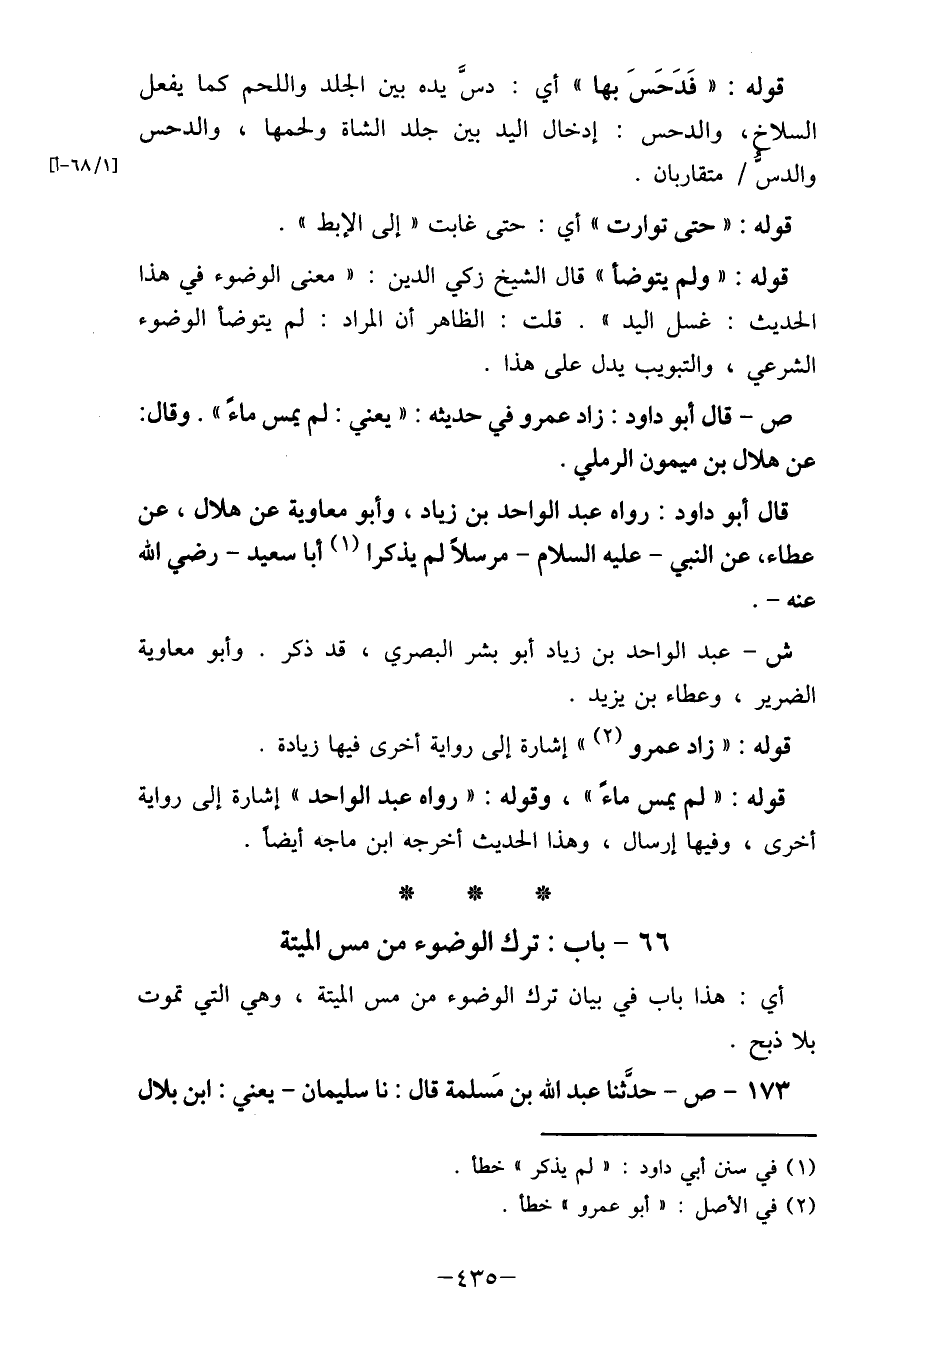 قوله : « فَدَحَسَ بها » أي : دسَّ يده بين الجلد واللحم كما يفعل
السلاخ، والدحس : إدخال اليد بين جلد الشاة ولحمها ، والدحس
[١/٦٨-أ]
والدسُّ / متقاربان .
قوله : « حتى توارت » أي : حتى غابت « إلى الإبط » .
قوله : « ولم يتوضأ » قال الشيخ زكي الدين : « معنى الوضوء في هذا
الحديث : غسل اليد » . قلت : الظاهر أن المراد : لم يتوضأ الوضوء
الشرعي ، والتبويب يدل على هذا .
ص – قال أبو داود : زاد عمرو في حديثه : « يعني : لم يمس ماءً » . وقال:
عن هلال بن ميمون الرملي .
قال أبو داود : رواه عبد الواحد بن زياد ، وأبو معاوية عن هلال ، عن
عطاء، عن النبي – عليه السلام – مرسلاً لم يذكرا (١) أبا سعيد – رضي الله
عنه – .
ش – عبد الواحد بن زياد أبو بشر البصري ، قد ذكر . وأبو معاوية
الضرير ، وعطاء بن يزيد .
قوله : « زاد عمرو (٢) » إشارة إلى رواية أخرى فيها زيادة .
قوله : « لم يمس ماءً » ، وقوله : « رواه عبد الواحد » إشارة إلى رواية
أخرى ، وفيها إرسال ، وهذا الحديث أخرجه ابن ماجه أيضاً .
* * *
٦٦ – باب : ترك الوضوء من مس الميتة
أي : هذا باب في بيان ترك الوضوء من مس الميتة ، وهي التي تموت
بلا ذبح .
١٧٣ – ص – حدَّثنا عبد الله بن مَسلمة قال : نا سليمان – يعني : ابن بلال
(١) في سنن أبي داود : « لم يذكر » خطأ .
(٢) في الأصل : « أبو عمرو » خطأ .
–٤٣٥–